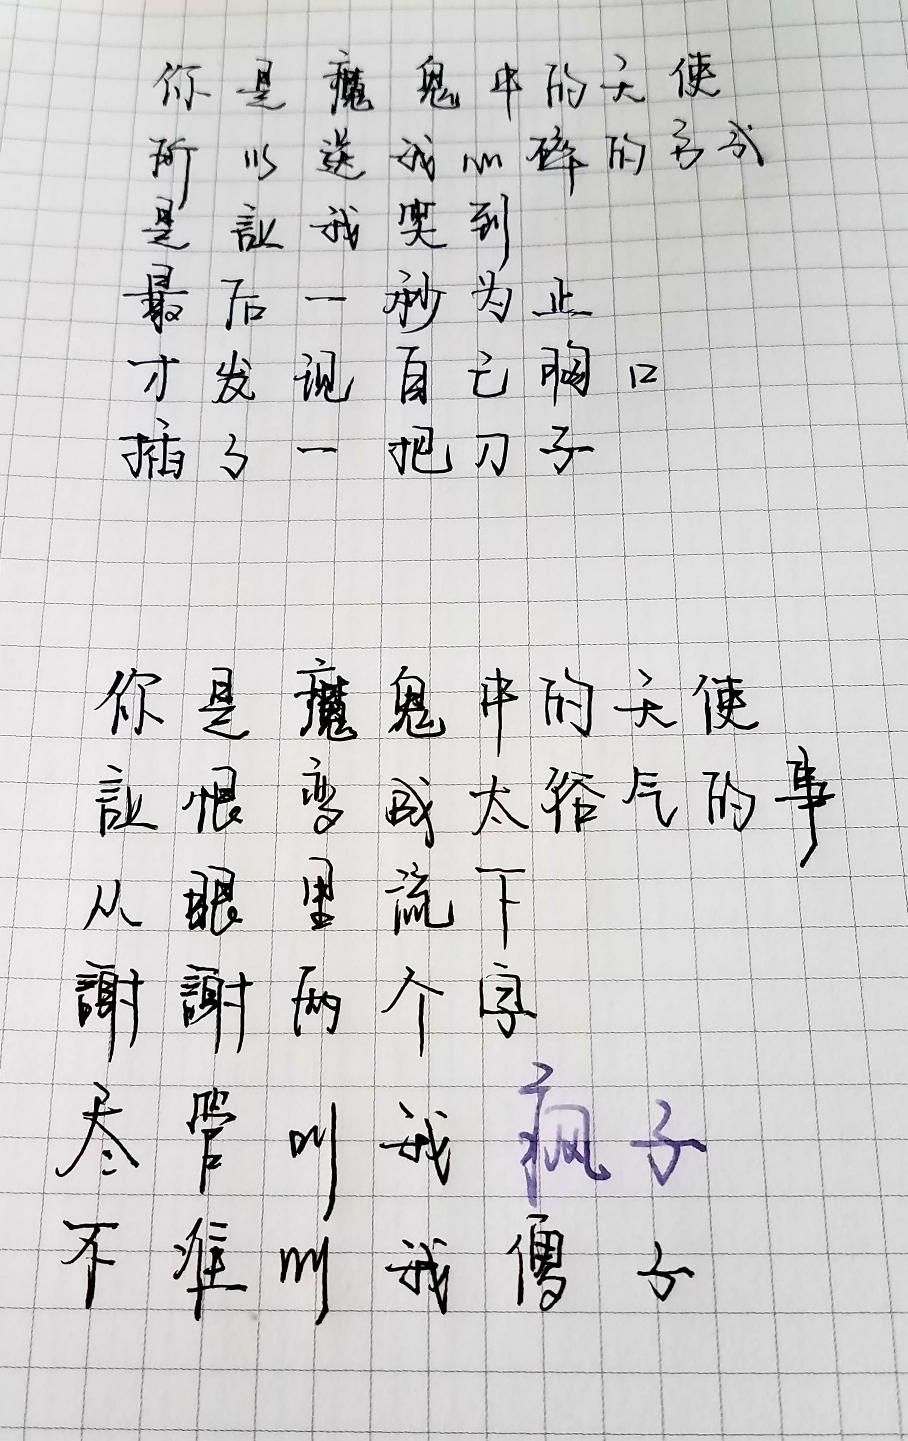 你是魔鬼中的天使
所以送我心碎的方式
是訟我笑到
最后一秒为止
才发现自己胸口
插了一把刀子
你是魔鬼中的天使
訟恨变成太俗气的事
从眼里流下
謝謝两个字
尽管叫我疯子
不准叫我傻子